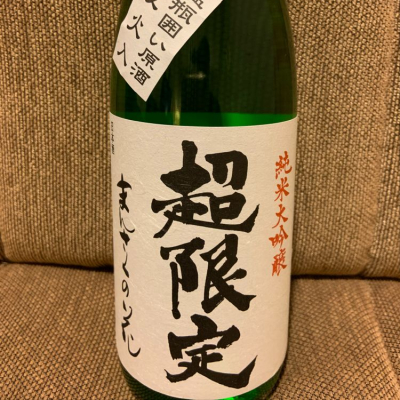 瓶囲い原酒
火入
純米大吟醸
超限定
まんさくの花